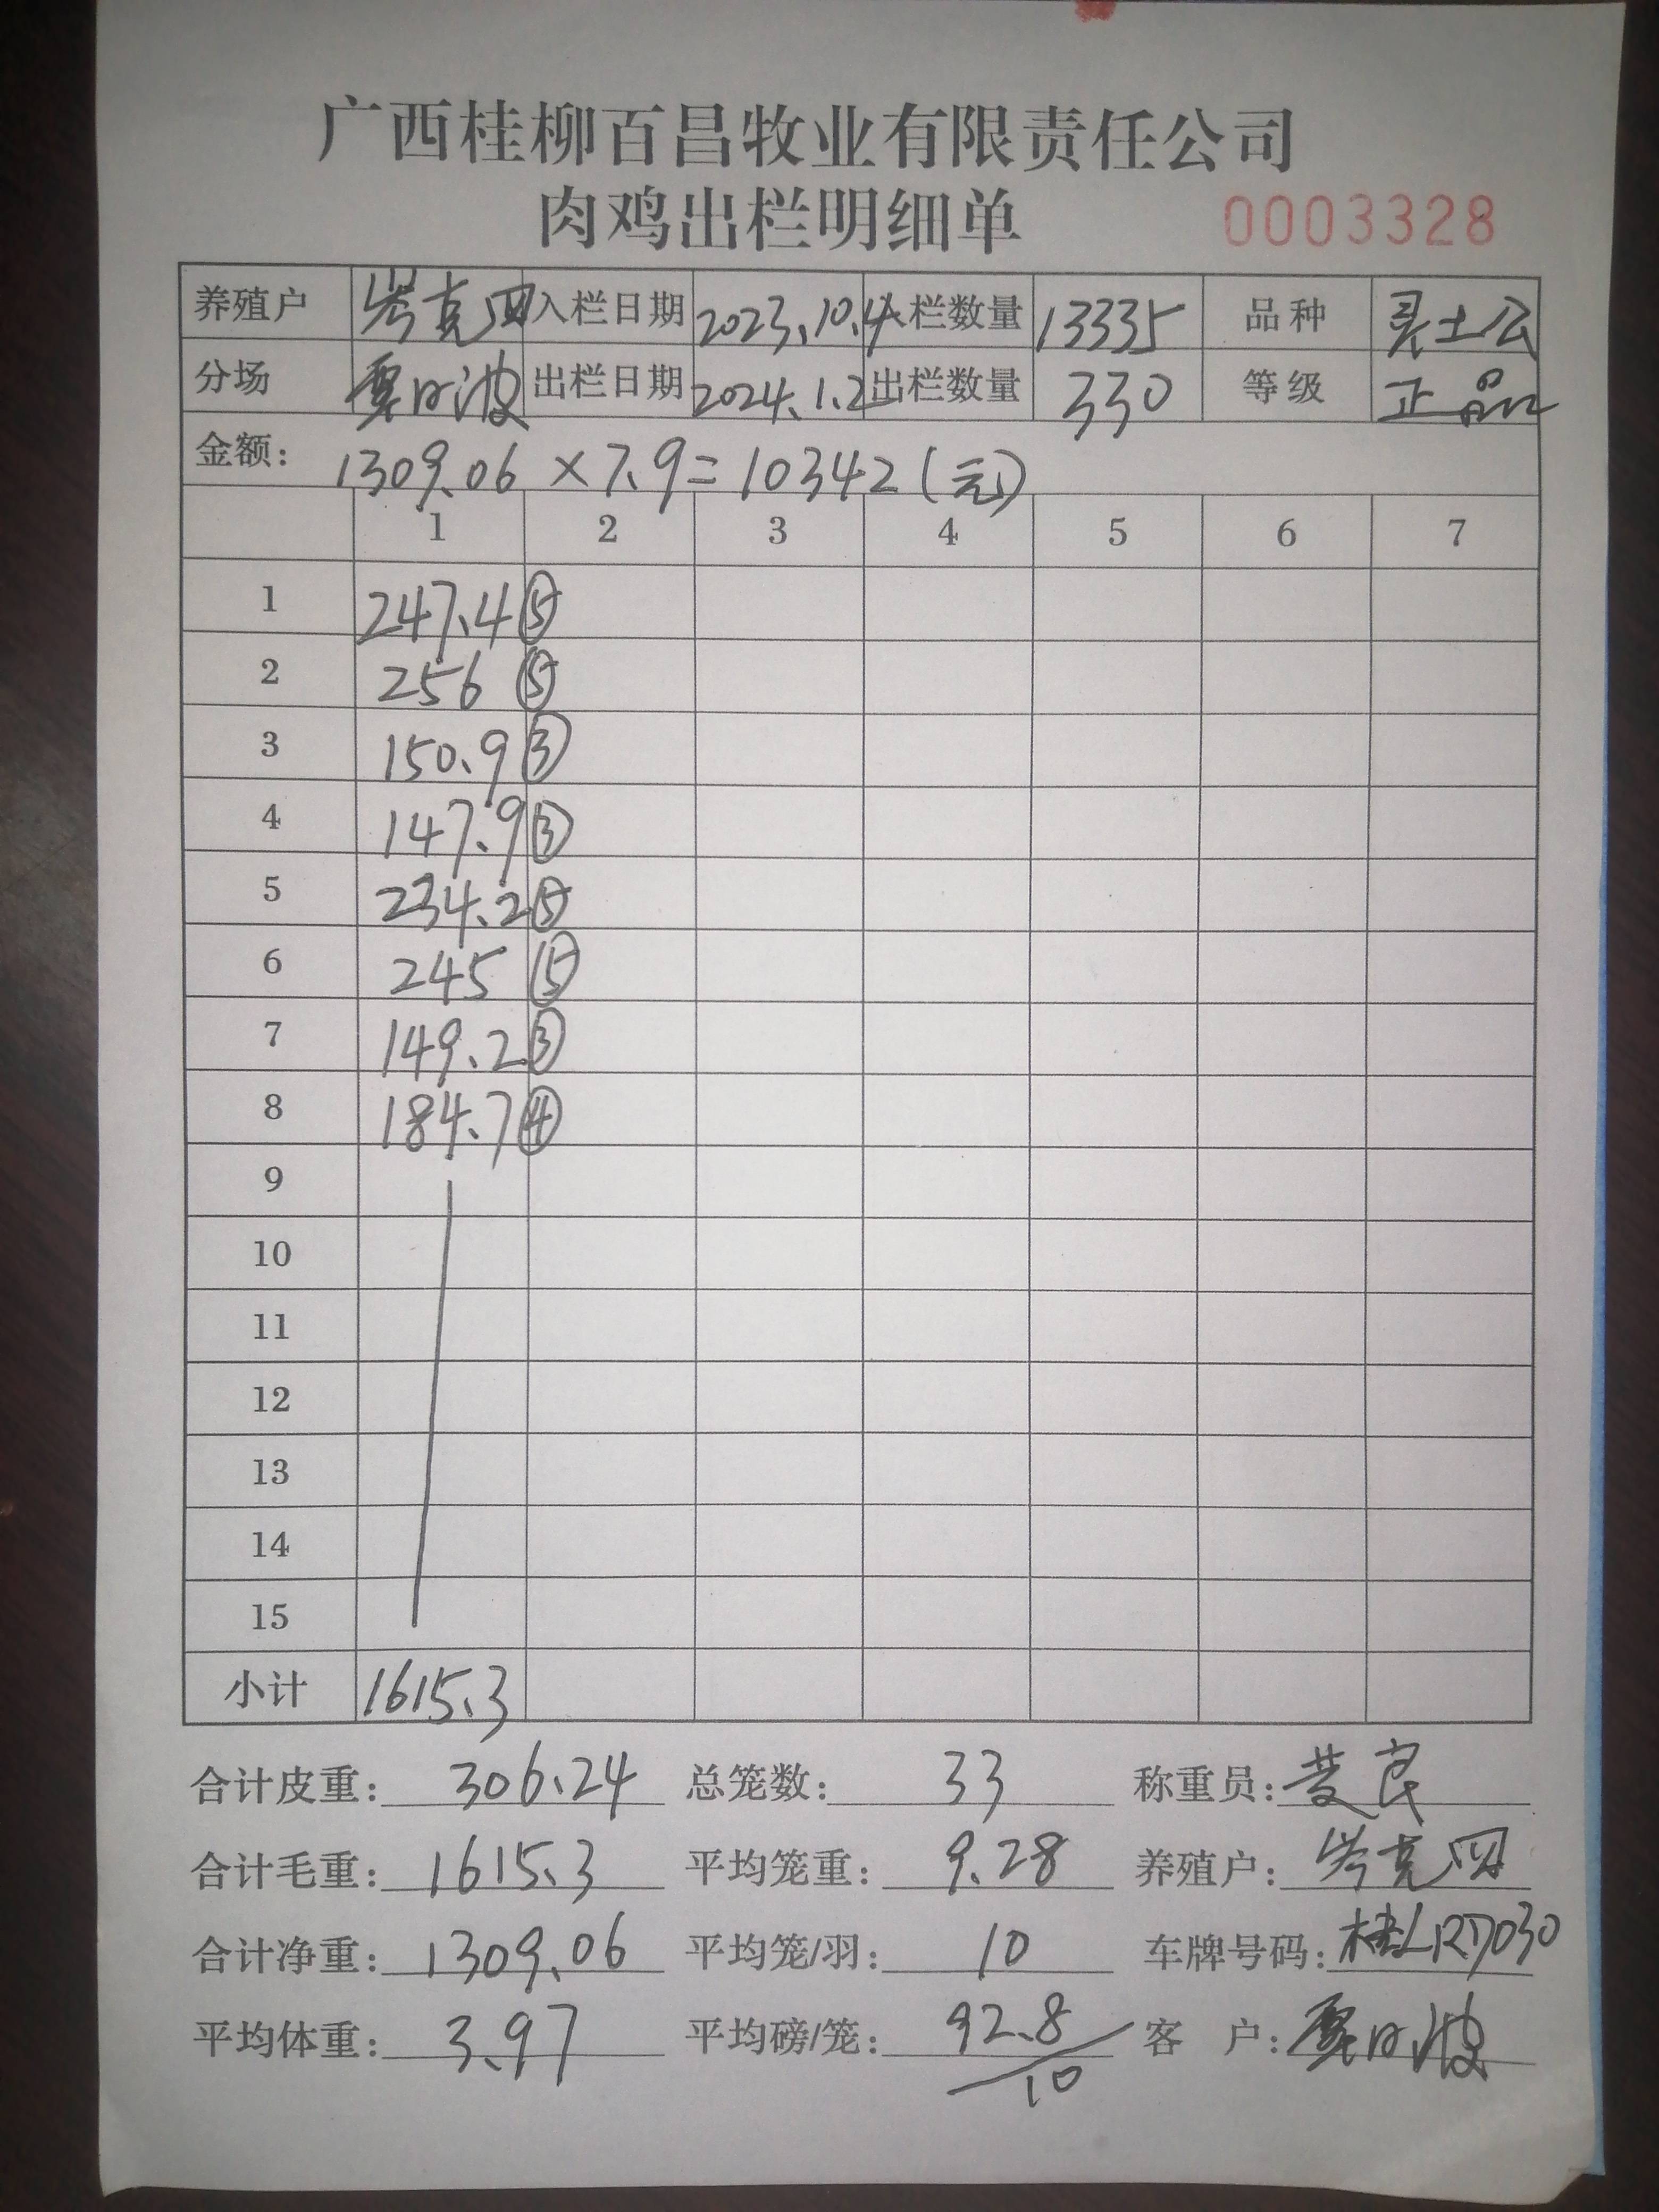 广西桂柳百昌牧业有限责任公司
肉鸡出栏明细单 0003328
养殖户 岑克四 入栏日期 2023.10.4 入栏数量 13335 品种 灵土公
分场 出栏日期 2024.1.2 出栏数量 330 等级 正品
金额: 1309.06×7.9=10342(元)
1 2 3 4 5 6 7
1 247.4⑤
2 256 ⑤
3 150.9③
4 147.9③
5 234.2⑤
6 245 ⑤
7 149.2③
8 184.7④
9
10
11
12
13
14
15
小计 1615.3
合计皮重: 306.24 总笼数: 33 称重员:
合计毛重: 1615.3 平均笼重: 9.28 养殖户: 岑克四
合计净重: 1309.06 平均笼/羽: 10 车牌号码: 桂LR7030
平均体重: 3.97 平均磅/笼: 92.8/10 客 户: